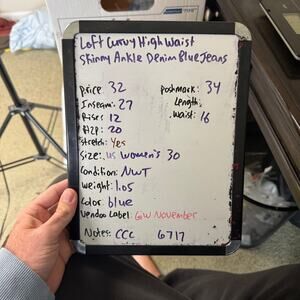 Loft Curvy High Waist
Skinny Ankle Denim Blue Jeans
Price 32
Poshmark: 34
Inseam: 27
Length:
Rise: 12
Waist: 16
Hip: 20
Stretch: Yes
Size: US Women's 30
Condition: NWT
Weight: 1.05
Color: blue
Vendoo Label: GW November
Notes: CCC 6717